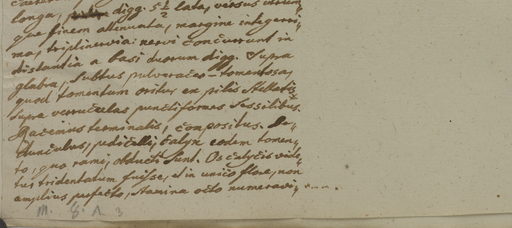 longa, digg. 5½ lata, versus utrum-
que finem attenuata, margine integerri-
ma, triplinervia: nervi concurrunt in
distantia a basi duorum digg. Supra
glabra, subtus pulveraceo-tomentosa,
quod tomentum oritur ex pilis stellatis
supra verruculas punctiformes sessilibus.
Racemus terminalis, compositus. Pe-
dunculus, pedicelli, calyx eodem tomen-
to, quo rami, obducti sunt. Os calycis vide-
tur tridentatum fuisse, et in unico flore, non
amplius perfecto, stamina octo numeravi,
M. 8. A. 3